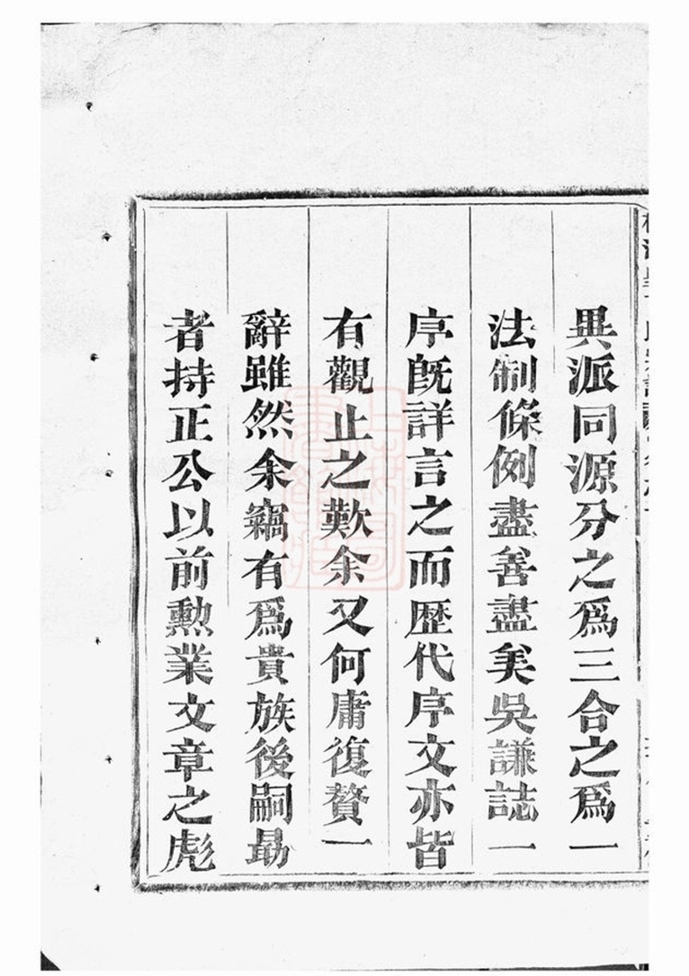 異派同源分之爲三合之爲一
法制條例盡善盡矣吳謙誌一
序旣詳言之而歴代序文亦皆
有觀止之歎余又何庸復贅一
辭雖然余竊有爲貴族後嗣勗
者持正公以前勲業文章之彪